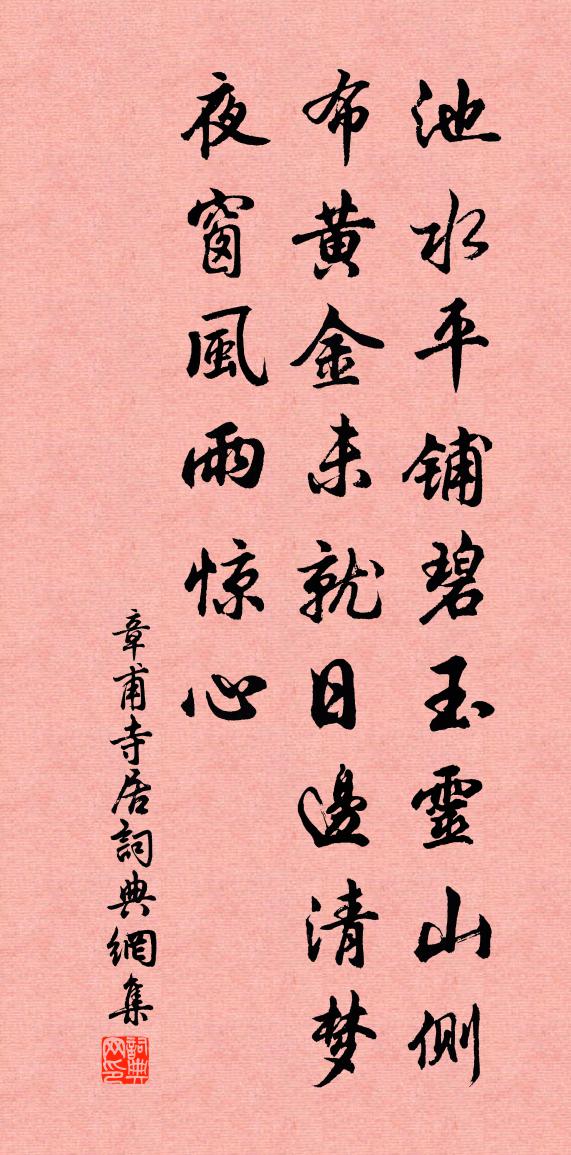 池水平铺碧玉靈山側
布黄金未就日邊清梦
夜窗風雨惊心
章甫寺居詞典網集
詞典網印